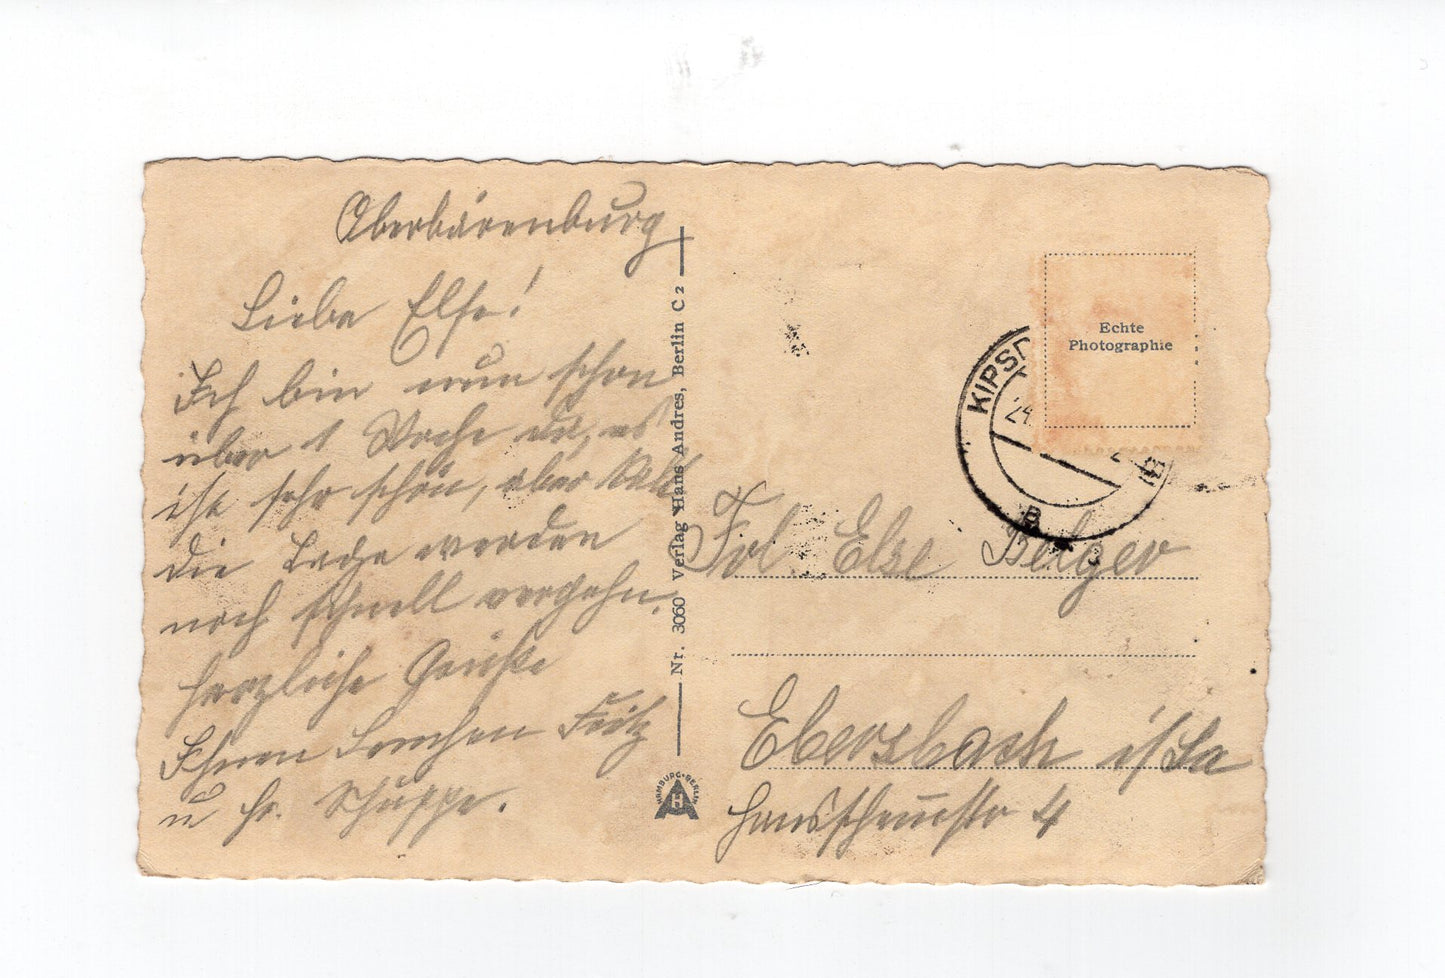 Oberbärenburg
Liebe Else!
Ich bin nun schon
über 1 Woche da, es
ist sehr schön, aber kalt
die Tage werden
noch schnell vergehn.
herzliche Grüße
Ihnen Lenchen Fritz
u Fr. Schuppe.
Nr. 3060 Verlag Hans Andres, Berlin C 2
HAMBURG-BERLIN
HA
Echte
Photographie
KIPSD
24.
B
Frl Else Belger
Ebersbach i/Sa
4